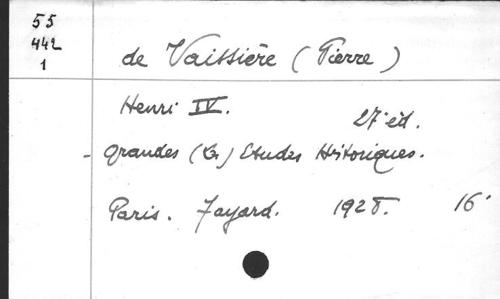 55
442
1
de Vaissière (Pierre)
Henri IV. 27e éd.
- Grandes (les) Etudes Historiques.
Paris. Fayard. 1928. 16°